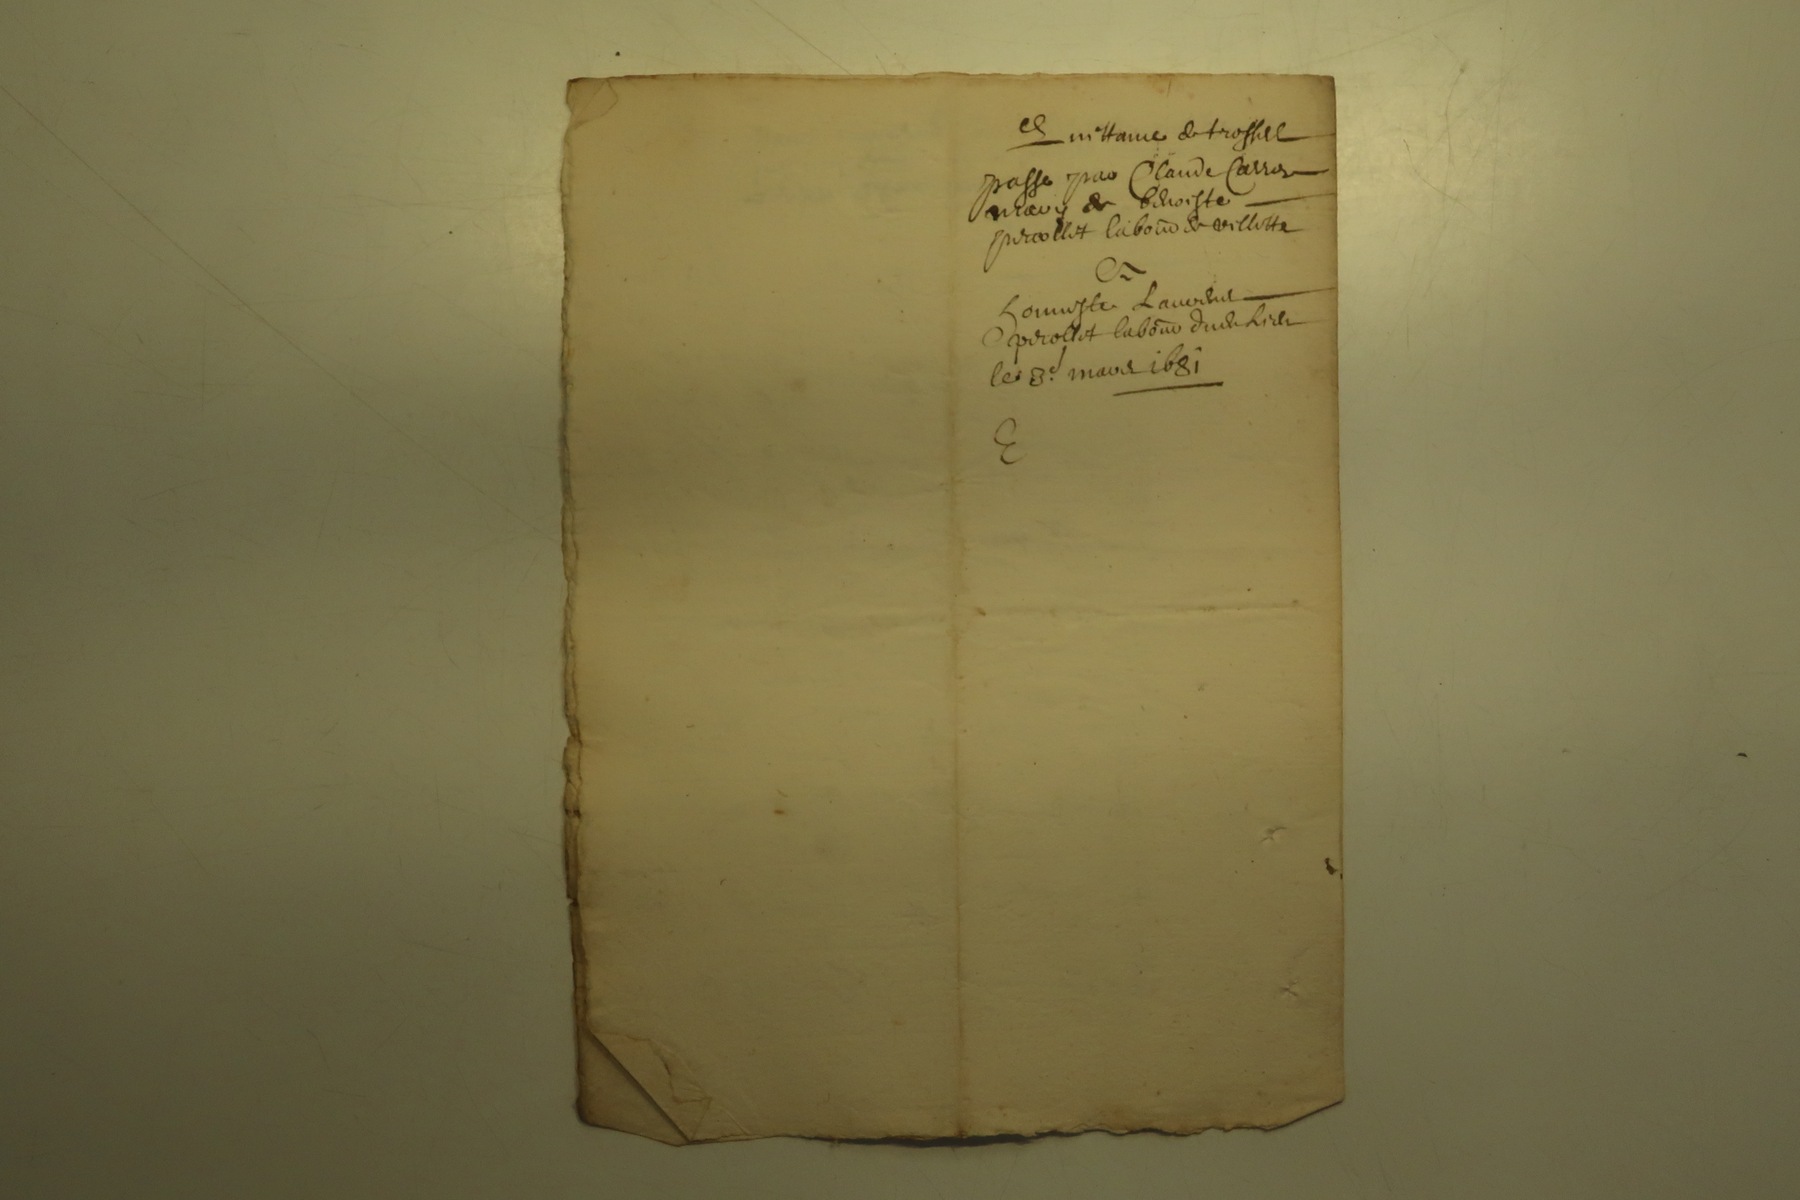 Quittance de trossel
passe par Claude Carron
mary de benoiste
perollet labor de villette
A
honneste Laurent
perollet labor dud lieu
le 3e mars 1681